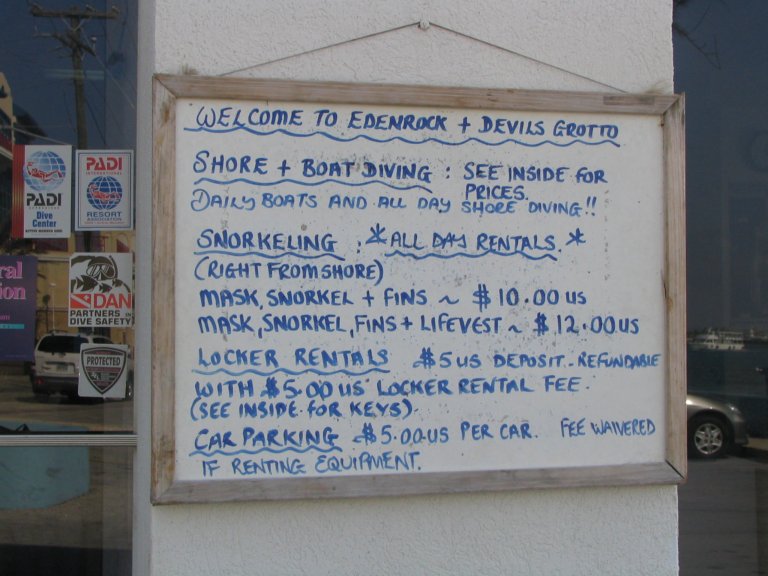 WELCOME TO EDENROCK + DEVILS GROTTO
SHORE + BOAT DIVING : SEE INSIDE FOR
PRICES.
DAILY BOATS AND ALL DAY SHORE DIVING!!
SNORKELING : *ALL DAY RENTALS.*
(RIGHT FROM SHORE)
MASK, SNORKEL + FINS ~ $10.00 US
MASK, SNORKEL, FINS + LIFEVEST ~ $12.00 US
LOCKER RENTALS $5 US DEPOSIT - REFUNDABLE
WITH $5.00 US LOCKER RENTAL FEE.
(SEE INSIDE FOR KEYS).
CAR PARKING $5.00 US PER CAR. FEE WAIVERED
IF RENTING EQUIPMENT.
PADI
Dive
Center
PADI
INTERNATIONAL
RESORT
ASSOCIATION
DAN
PARTNERS IN
DIVE SAFETY
PROTECTED
ral
ion